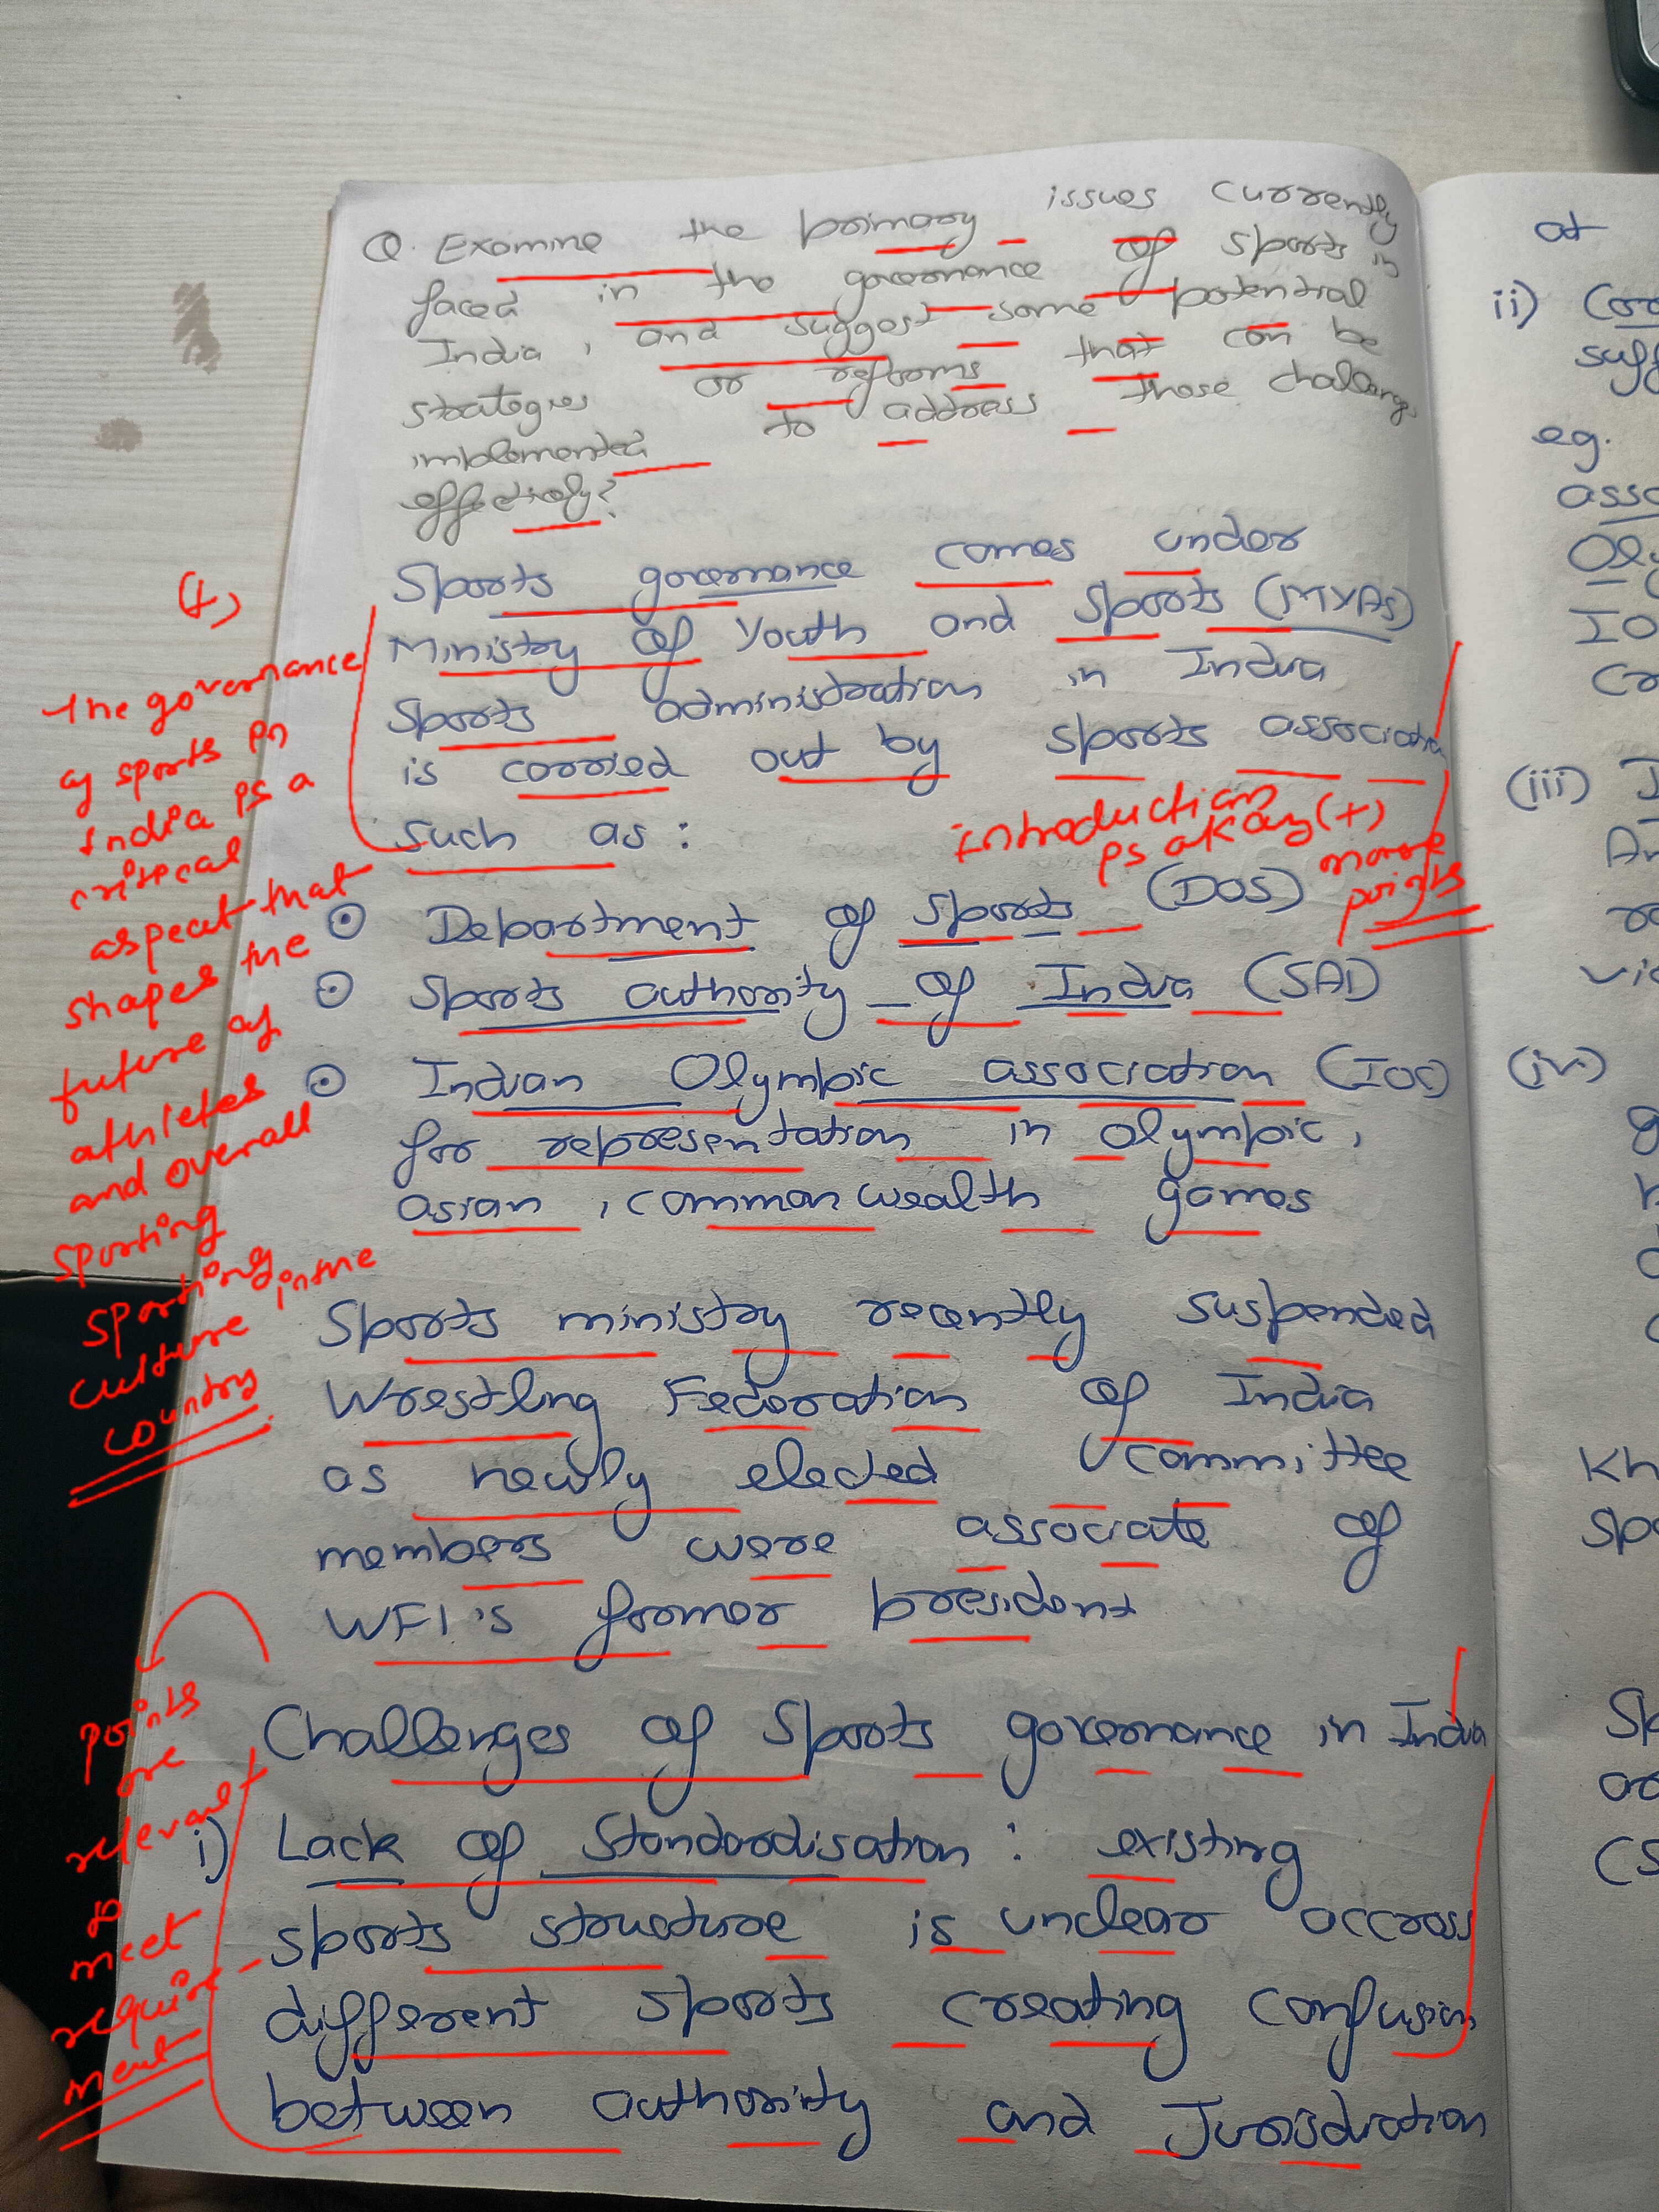 Q. Examine the primary issues currently
faced in the governance of sports in
India, and suggest some potential
strategies or reforms that can be
implemented to address those challenges
effectively?
Sports governance comes under
Ministry of Youth and Sports (MYAS)
Sports administration in India
is carried out by sports association
such as:
⊙ Department of Sports (DOS)
⊙ Sports authority of India (SAI)
⊙ Indian Olympic association (IOC)
for representation in olympic,
asian, commonwealth games
Sports ministry recently suspended
Wrestling Federation of India
as newly elected committee
members were associate of
WFI's former president
Challenges of Sports governance in India
i) Lack of Standardisation: existing
sports structure is unclear accross
different sports creating confusion
between authority and Jurisdiction
(+)
the governance
of sports in
India is a
critical
aspect that
shapes the
future of
athletes
and overall
sporting
sporting
culture in the
country
introduction
is okay (+)
more
points
points
are
relevant
to
meet
require-
ment
at
ii)
eg.
(iii)
(iv)